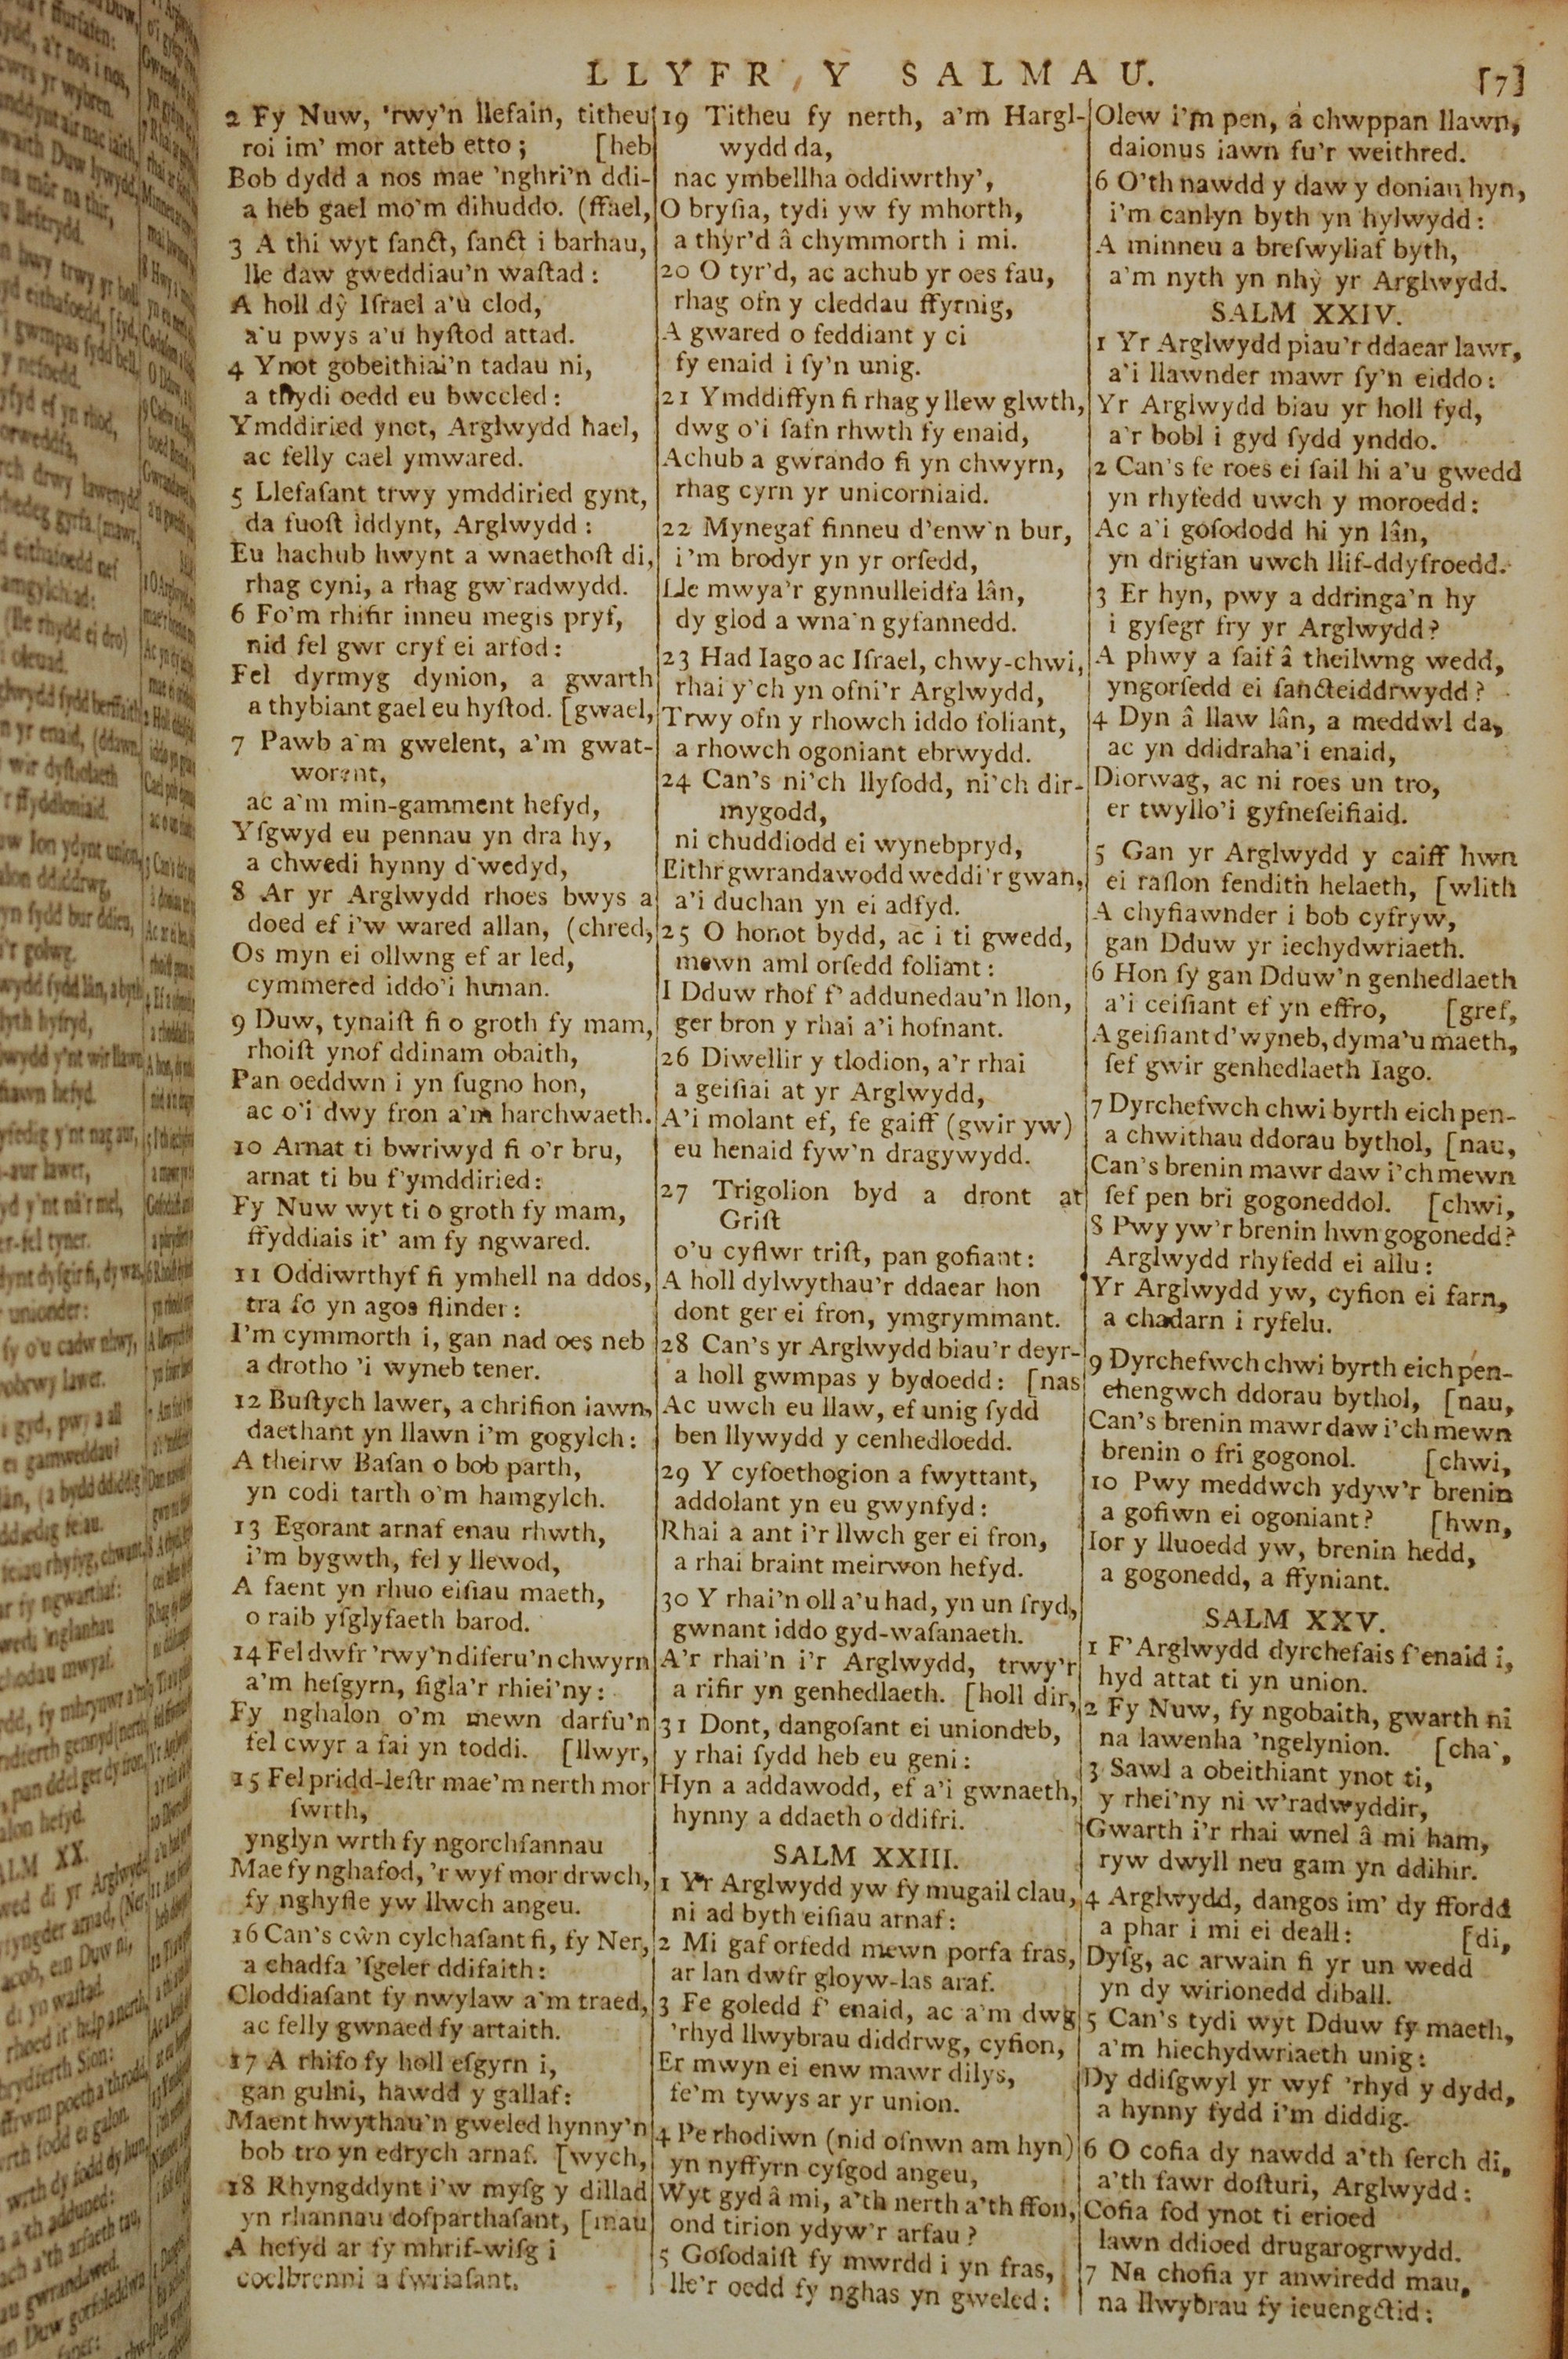 LLYFR Y SALMAU.
[7]
2 Fy Nuw, 'rwy'n llefain, titheu
roi im' mor atteb etto; [heb
Bob dydd a nos mae 'nghri'n ddi-
a heb gael mo'm dihuddo. (ffael,
3 A thi wyt ſanct, ſanct i barhau,
lle daw gweddiau'n waſtad:
A holl dŷ Iſrael a'u clod,
a'u pwys a'u hyſtod attad.
4 Ynot gobeithiai'n tadau ni,
a thydi oedd eu bwccled:
Ymddiried ynot, Arglwydd hael,
ac felly cael ymwared.
5 Llefaſant trwy ymddiried gynt,
da fuoſt iddynt, Arglwydd:
Eu hachub hwynt a wnaethoſt di,
rhag cyni, a rhag gw'radwydd.
6 Fo'm rhifir inneu megis pryf,
nid fel gwr cryf ei arfod:
Fel dyrmyg dynion, a gwarth
a thybiant gael eu hyſtod. [gwael,
7 Pawb a'm gwelent, a'm gwat-
worent,
ac a'm min-gamment hefyd,
Yſgwyd eu pennau yn dra hy,
a chwedi hynny d'wedyd,
8 Ar yr Arglwydd rhoes bwys a
doed ef i'w wared allan, (chred,
Os myn ei ollwng ef ar led,
cymmered iddo'i hunan.
9 Duw, tynaiſt fi o groth fy mam,
rhoiſt ynof ddinam obaith,
Pan oeddwn i yn ſugno hon,
ac o'i dwy fron a'm harchwaeth.
10 Arnat ti bwriwyd fi o'r bru,
arnat ti bu f'ymddiried:
Fy Nuw wyt ti o groth fy mam,
ffyddiais it' am fy ngwared.
11 Oddiwrthyf fi ymhell na ddos,
tra fo yn agos flinder:
I'm cymmorth i, gan nad oes neb
a drotho 'i wyneb tener.
12 Buſtych lawer, a chrifion iawn,
daethant yn llawn i'm gogylch:
A theirw Baſan o bob parth,
yn codi tarth o'm hamgylch.
13 Egorant arnaf enau rhwth,
i'm bygwth, fel y llewod,
A faent yn rhuo eiſiau maeth,
o raib yſglyfaeth barod.
14 Fel dwfr 'rwy'n diferu'n chwyrn
a'm heſgyrn, ſigla'r rhiei'ny:
Fy nghalon o'm mewn darfu'n
fel cwyr a fai yn toddi. [llwyr,
15 Fel pridd-leſtr mae'm nerth mor
ſwrth,
ynglyn wrth fy ngorchfannau
Mae fy nghafod, 'r wyf mor drwch,
fy nghyfle yw llwch angeu.
16 Can's cŵn cylchaſant fi, fy Ner,
a chadfa 'ſgeler ddifaith:
Cloddiaſant fy nwylaw a'm traed,
ac felly gwnaed fy artaith.
17 A rhifo fy holl eſgyrn i,
gan gulni, hawdd y gallaf:
Maent hwythau'n gweled hynny'n
bob tro yn edrych arnaf. [wych,
18 Rhyngddynt i'w myſg y dillad
yn rhannau doſparthaſant, [mau
A hefyd ar fy mhrif-wiſg i
coelbrenni a fwriaſant.
19 Titheu fy nerth, a'm Hargl-
wydd da,
nac ymbellha oddiwrthy',
O bryſia, tydi yw fy mhorth,
a thyr'd â chymmorth i mi.
20 O tyr'd, ac achub yr oes fau,
rhag ofn y cleddau ffyrnig,
A gwared o feddiant y ci
fy enaid i ſy'n unig.
21 Ymddiffyn fi rhag y llew glwth,
dwg o'i ſafn rhwth fy enaid,
Achub a gwrando fi yn chwyrn,
rhag cyrn yr unicorniaid.
22 Mynegaf finneu d'enw'n bur,
i'm brodyr yn yr orſedd,
Lle mwya'r gynnulleidfa lân,
dy glod a wna'n gyfannedd.
23 Had Iago ac Iſrael, chwy-chwi,
rhai y'ch yn ofni'r Arglwydd,
Trwy ofn y rhowch iddo foliant,
a rhowch ogoniant ebrwydd.
24 Can's ni'ch llyſodd, ni'ch dir-
mygodd,
ni chuddiodd ei wynebpryd,
Eithr gwrandawodd weddi'r gwan,
a'i duchan yn ei adfyd.
25 O honot bydd, ac i ti gwedd,
mewn aml orſedd foliant:
I Dduw rhof f' addunedau'n llon,
ger bron y rhai a'i hofnant.
26 Diwellir y tlodion, a'r rhai
a geiſiai at yr Arglwydd,
A'i molant ef, fe gaiff (gwir yw)
eu henaid fyw'n dragywydd.
27 Trigolion byd a dront at
Griſt
o'u cyflwr triſt, pan gofiant:
A holl dylwythau'r ddaear hon
dont ger ei fron, ymgrymmant.
28 Can's yr Arglwydd biau'r deyr-
a holl gwmpas y bydoedd: [nas
Ac uwch eu llaw, ef unig ſydd
ben llywydd y cenhedloedd.
29 Y cyfoethogion a fwyttant,
addolant yn eu gwynfyd:
Rhai a ant i'r llwch ger ei fron,
a rhai braint meirwon hefyd.
30 Y rhai'n oll a'u had, yn un fryd,
gwnant iddo gyd-waſanaeth.
A'r rhai'n i'r Arglwydd, trwy'r
a rifir yn genhedlaeth. [holl dir,
31 Dont, dangoſant ei uniondeb,
y rhai ſydd heb eu geni:
Hyn a addawodd, ef a'i gwnaeth,
hynny a ddaeth o ddifri.
SALM XXIII.
1 Yr Arglwydd yw fy mugail clau,
ni ad byth eiſiau arnaf:
2 Mi gaf orfedd mewn porfa fras,
ar lan dwfr gloyw-las araf.
3 Fe goledd f' enaid, ac a'm dwg
'rhyd llwybrau diddrwg, cyfion,
Er mwyn ei enw mawr dilys,
fe'm tywys ar yr union.
4 Pe rhodiwn (nid ofnwn am hyn)
yn nyffyrn cyſgod angeu,
Wyt gyd â mi, a'th nerth a'th ffon,
ond tirion ydyw'r arfau?
5 Goſodaiſt fy mwrdd i yn fras,
lle'r oedd fy nghas yn gweled:
Olew i'm pen, a chwppan llawn,
daionus iawn fu'r weithred.
6 O'th nawdd y daw y doniau hyn,
i'm canlyn byth yn hylwydd:
A minneu a breſwyliaf byth,
a'm nyth yn nhŷ yr Arglwydd.
SALM XXIV.
1 Yr Arglwydd piau'r ddaear lawr,
a'i llawnder mawr ſy'n eiddo:
Yr Arglwydd biau yr holl fyd,
a'r bobl i gyd ſydd ynddo.
2 Can's fe roes ei ſail hi a'u gwedd
yn rhyfedd uwch y moroedd:
Ac a'i goſododd hi yn lân,
yn drigfan uwch llif-ddyfroedd.
3 Er hyn, pwy a ddringa'n hy
i gyſegr fry yr Arglwydd?
A phwy a ſaif â theilwng wedd,
yngorſedd ei ſancteiddrwydd?
4 Dyn â llaw lân, a meddwl da,
ac yn ddidraha'i enaid,
Diorwag, ac ni roes un tro,
er twyllo'i gyfneſeifiaid.
5 Gan yr Arglwydd y caiff hwn
ei raſlon fendith helaeth, [wlith
A chyfiawnder i bob cyfryw,
gan Dduw yr iechydwriaeth.
6 Hon ſy gan Dduw'n genhedlaeth
a'i ceiſiant ef yn effro, [gref,
A geiſiant d'wyneb, dyma'u maeth,
ſef gwir genhedlaeth Iago.
7 Dyrchefwch chwi byrth eich pen-
a chwithau ddorau bythol, [nau,
Can's brenin mawr daw i'ch mewn
ſef pen bri gogoneddol. [chwi,
8 Pwy yw'r brenin hwn gogonedd?
Arglwydd rhyfedd ei allu:
Yr Arglwydd yw, cyfion ei farn,
a chadarn i ryfelu.
9 Dyrchefwch chwi byrth eich pen-
ehengwch ddorau bythol, [nau,
Can's brenin mawr daw i'ch mewn
brenin o fri gogonol. [chwi,
10 Pwy meddwch ydyw'r brenin
a gofiwn ei ogoniant? [hwn,
Ior y lluoedd yw, brenin hedd,
a gogonedd, a ffyniant.
SALM XXV.
1 F'Arglwydd dyrchefais f'enaid i,
hyd attat ti yn union.
2 Fy Nuw, fy ngobaith, gwarth ni
na lawenha 'ngelynion. [cha',
3 Sawl a obeithiant ynot ti,
y rhei'ny ni w'radwyddir,
Gwarth i'r rhai wnel â mi ham,
ryw dwyll neu gam yn ddihir.
4 Arglwydd, dangos im' dy ffordd
a phar i mi ei deall: [di,
Dyſg, ac arwain fi yr un wedd
yn dy wirionedd diball.
5 Can's tydi wyt Dduw fy maeth,
a'm hiechydwriaeth unig:
Dy ddiſgwyl yr wyf 'rhyd y dydd,
a hynny ſydd i'm diddig.
6 O cofia dy nawdd a'th ſerch di,
a'th fawr doſturi, Arglwydd:
Cofia fod ynot ti erioed
lawn ddioed drugarogrwydd.
7 Na chofia yr anwiredd mau,
na llwybrau fy ieuengctid: